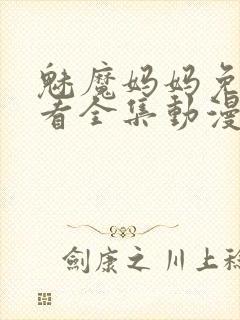 魅魔妈妈免
看全集動漫
劍康之 川上稔